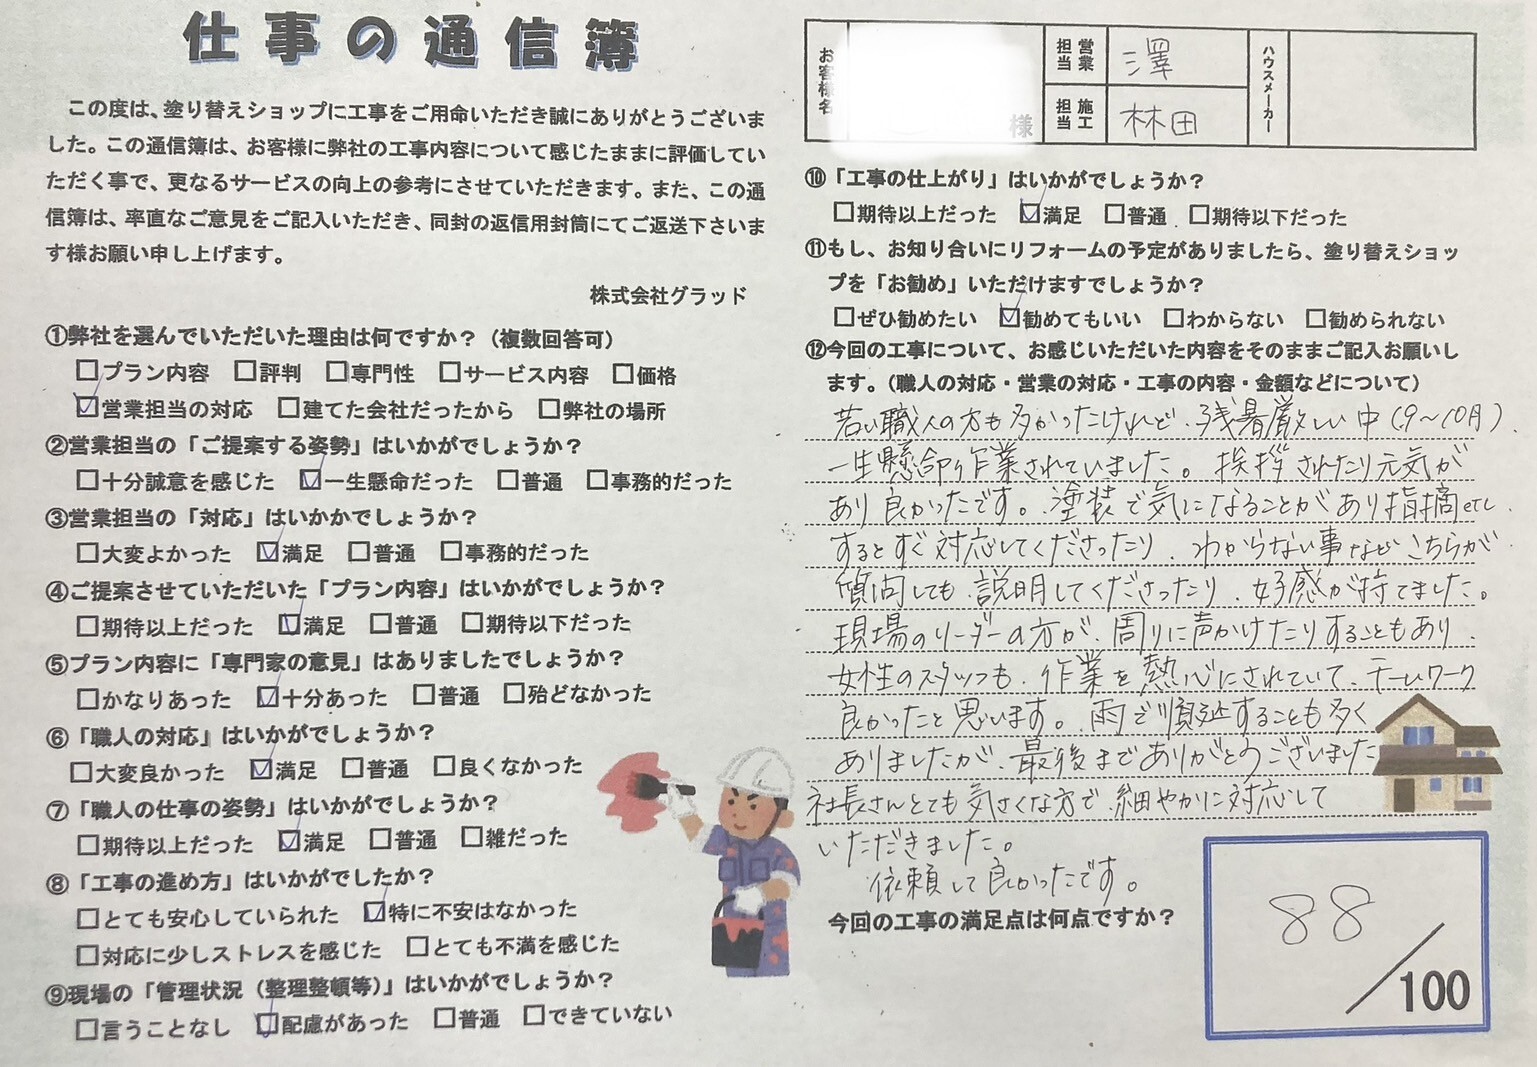 仕事の通信簿
この度は、塗り替えショップに工事をご用命いただき誠にありがとうございま
した。この通信簿は、お客様に弊社の工事内容について感じたままに評価してい
ただく事で、更なるサービスの向上の参考にさせていただきます。また、この通
信簿は、率直なご意見をご記入いただき、同封の返信用封筒にてご返送下さいま
す様お願い申し上げます。
株式会社グラッド
①弊社を選んでいただいた理由は何ですか？（複数回答可）
□プラン内容 □評判 □専門性 □サービス内容 □価格
☑営業担当の対応 □建てた会社だったから □弊社の場所
②営業担当の「ご提案する姿勢」はいかがでしょうか？
□十分誠意を感じた ☑一生懸命だった □普通 □事務的だった
③営業担当の「対応」はいかかでしょうか？
□大変よかった ☑満足 □普通 □事務的だった
④ご提案させていただいた「プラン内容」はいかがでしょうか？
□期待以上だった ☑満足 □普通 □期待以下だった
⑤プラン内容に「専門家の意見」はありましたでしょうか？
□かなりあった ☑十分あった □普通 □殆どなかった
⑥「職人の対応」はいかがでしょうか？
□大変良かった ☑満足 □普通 □良くなかった
⑦「職人の仕事の姿勢」はいかがでしょうか？
□期待以上だった ☑満足 □普通 □雑だった
⑧「工事の進め方」はいかがでしたか？
□とても安心していられた ☑特に不安はなかった
□対応に少しストレスを感じた □とても不満を感じた
⑨現場の「管理状況（整理整頓等）」はいかがでしょうか？
□言うことなし ☑配慮があった □普通 □できていない
お客様名 様 営業担当 澤 ハウスメーカー
施工担当 林田
⑩「工事の仕上がり」はいかがでしょうか？
□期待以上だった ☑満足 □普通 □期待以下だった
⑪もし、お知り合いにリフォームの予定がありましたら、塗り替えショッ
プを「お勧め」いただけますでしょうか？
□ぜひ勧めたい ☑勧めてもいい □わからない □勧められない
⑫今回の工事について、お感じいただいた内容をそのままご記入お願いし
ます。（職人の対応・営業の対応・工事の内容・金額などについて）
若い職人の方も多かったけれど、残暑厳しい中（9〜10月）、
一生懸命作業されていました。挨拶されたり元気が
あり良かったです。塗装で気になることがあり指摘etc
するとすぐ対応してくださったり、わからない事などこちらが
質問しても説明してくださったり、好感が持てました。
現場のリーダーの方が、周りに声かけたりすることもあり、
女性のスタッフも、作業を熱心にされていて、チームワーク
良かったと思います。雨で順延することも多く
ありましたが、最後までありがとうございました
社長さんとても気さくな方で、細やかに対応して
いただきました。
依頼して良かったです。
今回の工事の満足点は何点ですか？
88
/100